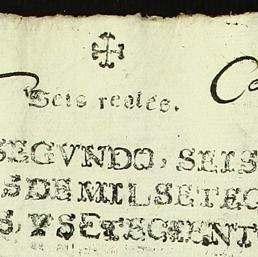 Seis reales.
SEGVNDO, SEIS
S DE MIL SETEC
S, Y SETECIENT